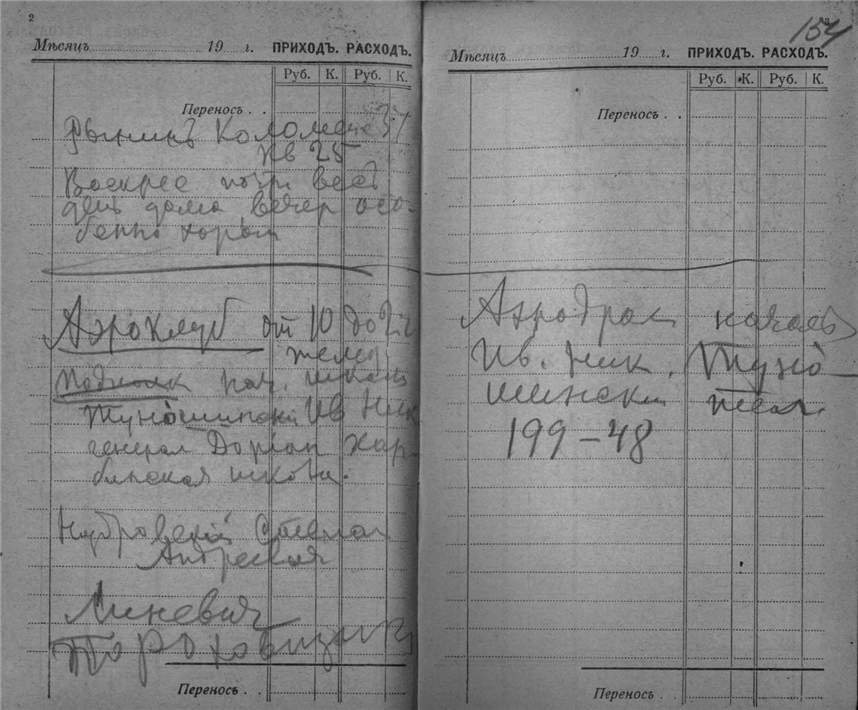 2
Мѣсяцъ 19 г. ПРИХОДЪ. РАСХОДЪ.
Руб. К. Руб. К.
Переносъ . .
Рынинъ Коломенс 37
кв 25
Воскрес весь
день дома вечер осо-
бенно хорош
Аэроклуб от 10 до 2
Подполк нач. школы
Тунóшински Ив Ник
генерал Дорман Хар
бинская школа.
Степан
Андреевич
Линевич
Пороховщик
Переносъ . .
154
Мѣсяцъ 19 г. ПРИХОДЪ. РАСХОДЪ.
Руб. К. Руб. К.
Переносъ . .
Аэродром началь
Ив. Ник. Тунó-
шински тел.
199-48
Переносъ . .